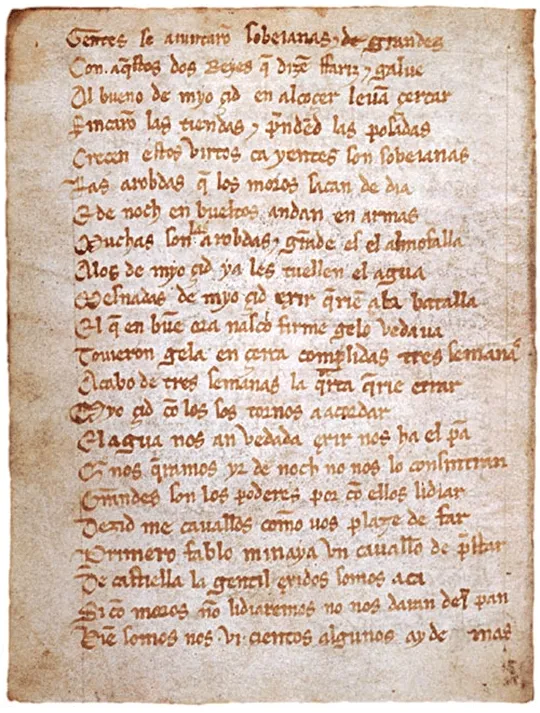 Gentes se aiuntarõ sobeianas de grandes
Con aq̃stos dos Reyes q̃ dizẽ ffariz ⁊ galue
Al bueno de myo çid en alcoçer leuã çercar
Fincarõ las tiendas ⁊ p̃nded̃ las posadas
Crecen estos virtos ca yentes son sobeianas
Las arobdas q̃ los moros sacan de dia
E de noch en bueltos andan en armas
Muchas son las arobdas ⁊ grãde es el almofalla
Alos de myo çid ya les tuellen el agua
Mesnadas de myo çid exir q̃riẽ ala batalla
El q̃ en buẽ ora nasco firme gelo vedaua
Touieron gela en çerca complidas tres semanas
Acabo de tres semanas la q̃rta q̃rie entrar
Myo çid cõ los sos tornos a acordar
El agua nos an vedada exir nos ha el pã
Q̃ nos q̃ramos yr de noch no nos lo consintran
Grandes son los poderes por cõ ellos lidiar
Dezid me cauall̃os commo uos plaze de far
Primero fablo minaya vn cauall̃o de p̃star
De castiella la gentil exidos somos aca
Si cõ moros nõ lidiaremos no nos daran del pan
Biẽ somos nos vi. cientos algunos ay de mas